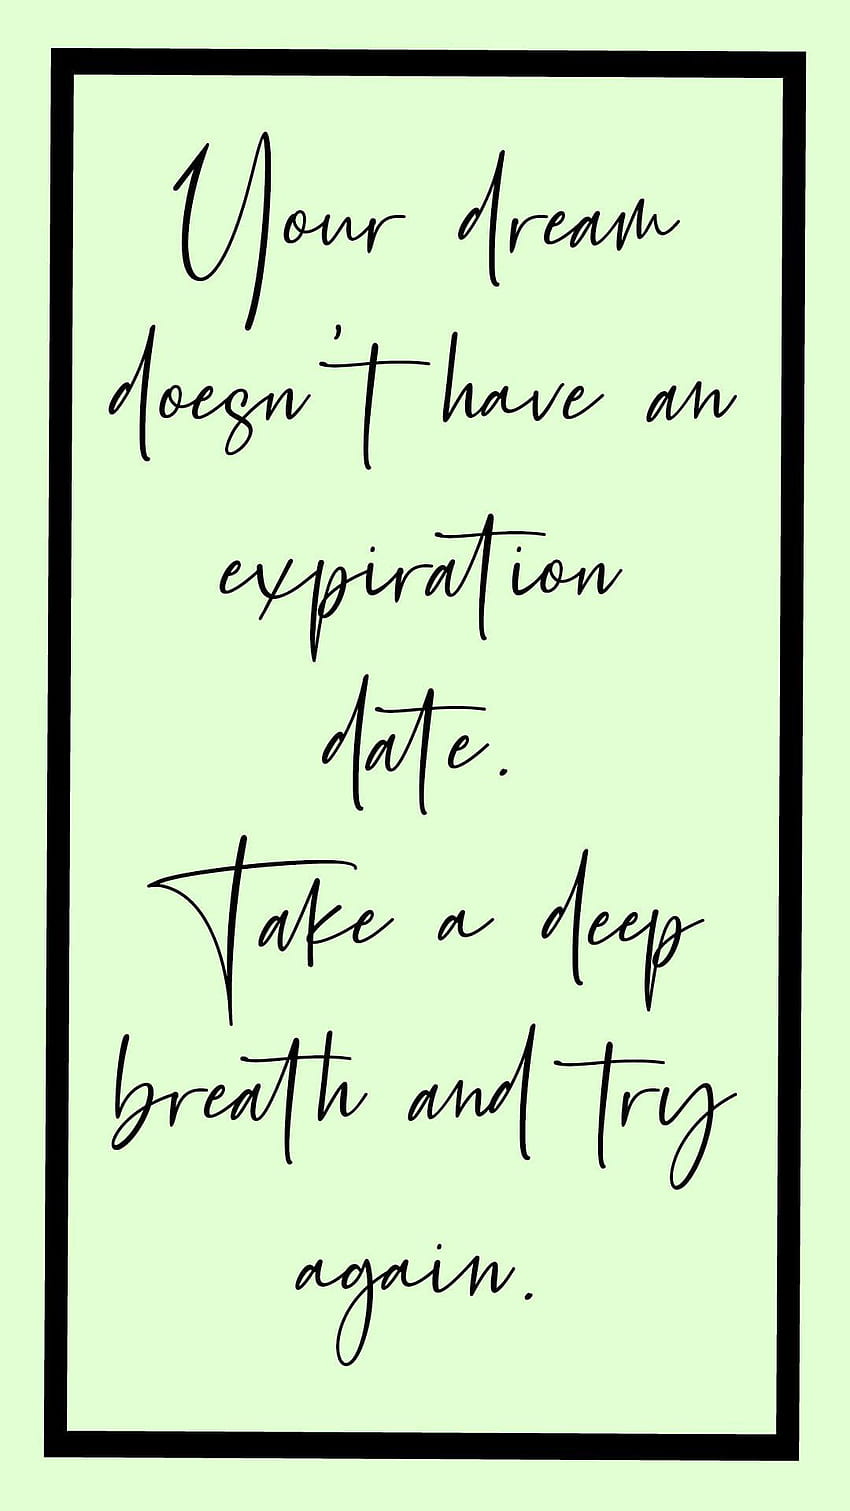 Your dream
doesn't have an
expiration
date.
Take a deep
breath and try
again.